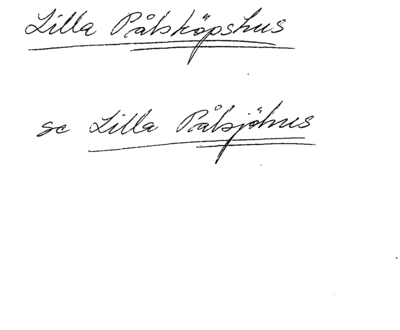 Lilla Pålsköpshus
se Lilla Pålsjöhus